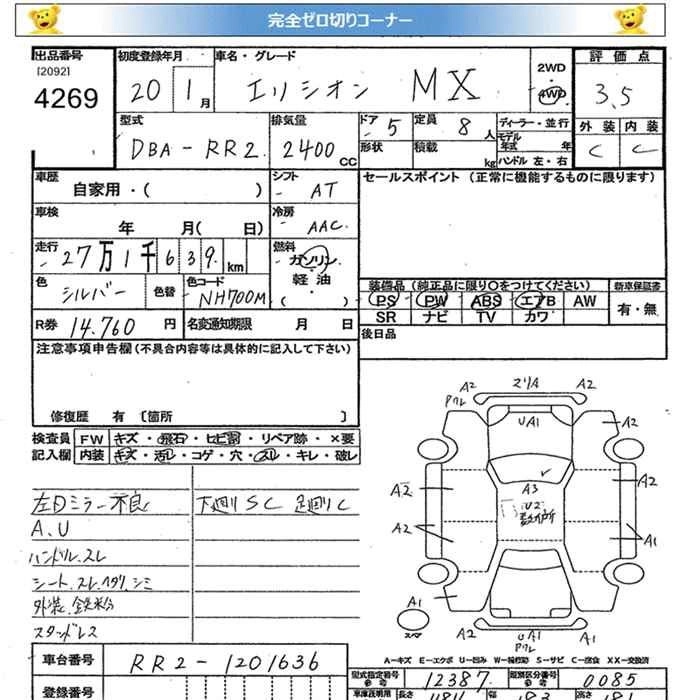 完全ゼロ切りコーナー
出品番号 [2092] 4269
初度登録年月 20 1月
車名・グレード エリシオン MX
2WD 4WD
評価点 3.5
外装 C 内装 C
型式 DBA-RR2
排気量 2400 CC
ドア - 5 形状
定員 8人 積載 kg
ディーラー・並行
モデル年式 年
ハンドル 左・右
車歴 自家用・( )
シフト - AT
セールスポイント (正常に機能するものに限ります)
車検 年 月( 日)
冷房 - AAC
走行 27万1千639km
燃料 ガソリン 軽油 ( )
色 シルバー 色替
色コード NH700M
装備品 (純正品に限り○をつけてください)
新車保証書 有・無
PS PW ABS エアB AW
SR ナビ TV カワ
R券 14.760円
名変通知期限 月 日
後日品
注意事項申告欄 (不具合内容等は具体的に記入して下さい)
修復歴 有 [箇所 ]
検査員 FW キズ・飛石・ヒビ割・リペア跡・×要
記入欄 内装 キズ・汚レ・コゲ・穴・スレ・キレ・破レ
左Dミラー不良 下廻りSC 足廻りC
A、U
ハンドル、スレ
シート、スレ、ヘタリ、シミ
外装、鉄粉
スタッドレス
A2 マリA A2
Pクレ
UA1
A2
A2 A3 A2
U2 数ヶ所
A2 A1
A1
スペア
A2 UA1 A2
Pクレ
A-キズ E-エクボ U-凹み W-補修跡 S-サビ C-腐食 XX-交換済
車台番号 RR2-1201636
型式指定番号 参考 12387
類別区分番号 参考 0085
登録番号
車庫証明用 長さ 幅 高さ